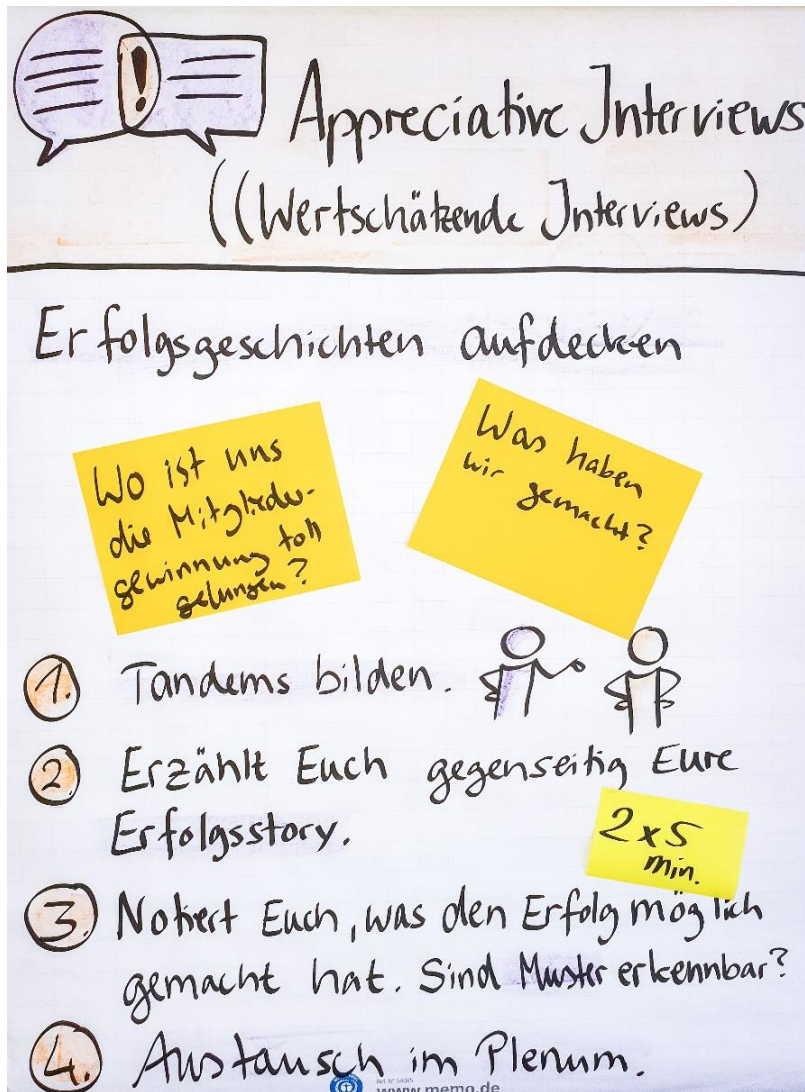 Appreciative Interviews
((Wertschätzende Interviews)
Erfolgsgeschichten aufdecken
Wo ist uns
die Mitglieder-
gewinnung toll
gelungen?
Was haben
wir gemacht?
1. Tandems bilden.
2. Erzählt Euch gegenseitig Eure
Erfolgsstory.
2x5
min.
3. Notiert Euch, was den Erfolg möglich
gemacht hat. Sind Muster erkennbar?
4. Austausch im Plenum.
www.memo.de